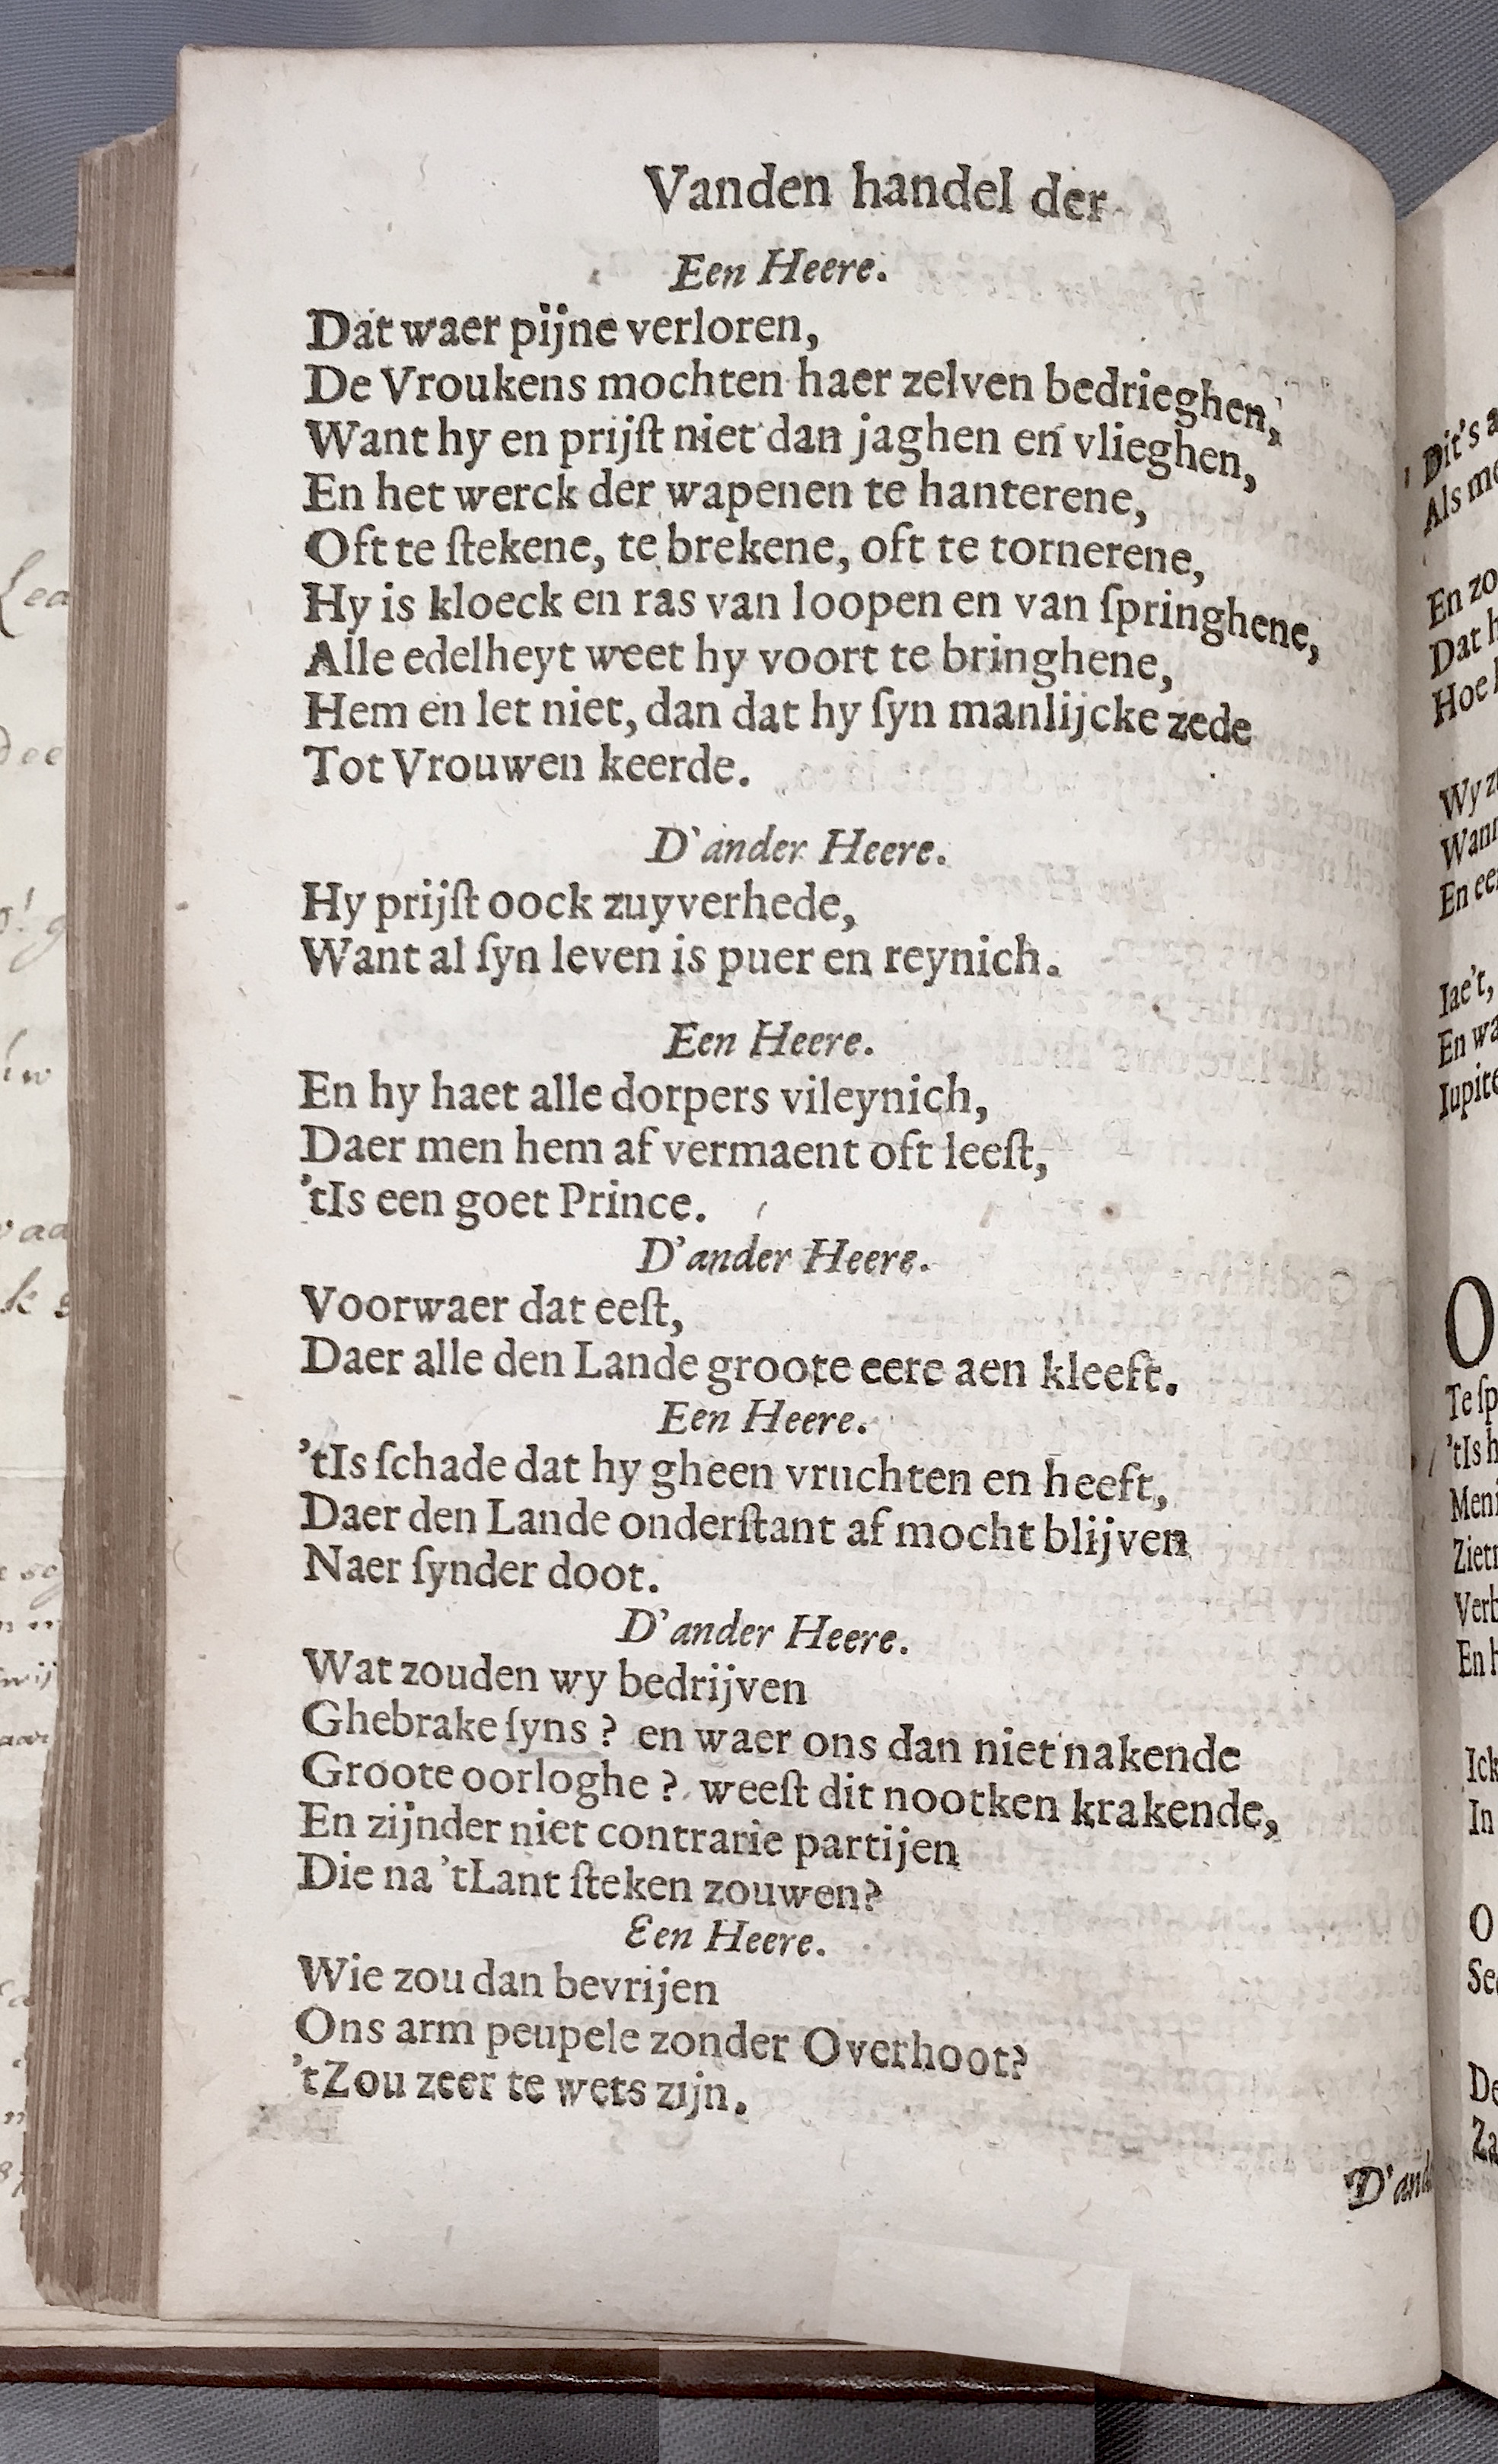 Vanden handel der
Een Heere.
Dat waer pijne verloren,
De Vroukens mochten haer zelven bedrieghen,
Want hy en prijſt niet dan jaghen en vlieghen,
En het werck der wapenen te hanterene,
Oft te ſtekene, te brekene, oft te tornerene,
Hy is kloeck en ras van loopen en van ſpringhene,
Alle edelheyt weet hy voort te bringhene,
Hem en let niet, dan dat hy ſyn manlijcke zede
Tot Vrouwen keerde.
D'ander Heere.
Hy prijſt oock zuyverhede,
Want al ſyn leven is puer en reynich.
Een Heere.
En hy haet alle dorpers vileynich,
Daer men hem af vermaent oft leeſt,
'tIs een goet Prince.
D'ander Heere.
Voorwaer dat eeſt,
Daer alle den Lande groote eere aen kleeft.
Een Heere.
'tIs ſchade dat hy gheen vruchten en heeft,
Daer den Lande onderſtant af mocht blijven
Naer ſynder doot.
D'ander Heere.
Wat zouden wy bedrijven
Ghebrake ſyns? en waer ons dan niet nakende
Groote oorloghe? weeſt dit nootken krakende,
En zijnder niet contrarie partijen
Die na 'tLant ſteken zouwen?
Een Heere.
Wie zou dan bevrijen
Ons arm peupele zonder Overhoot?
'tZou zeer te wets zijn.
D'and
Dit's
Als
En zo
Dat
Hoe
Wy
En
Iae't,
En
O
Te
'tIs
En
Ick
In
O